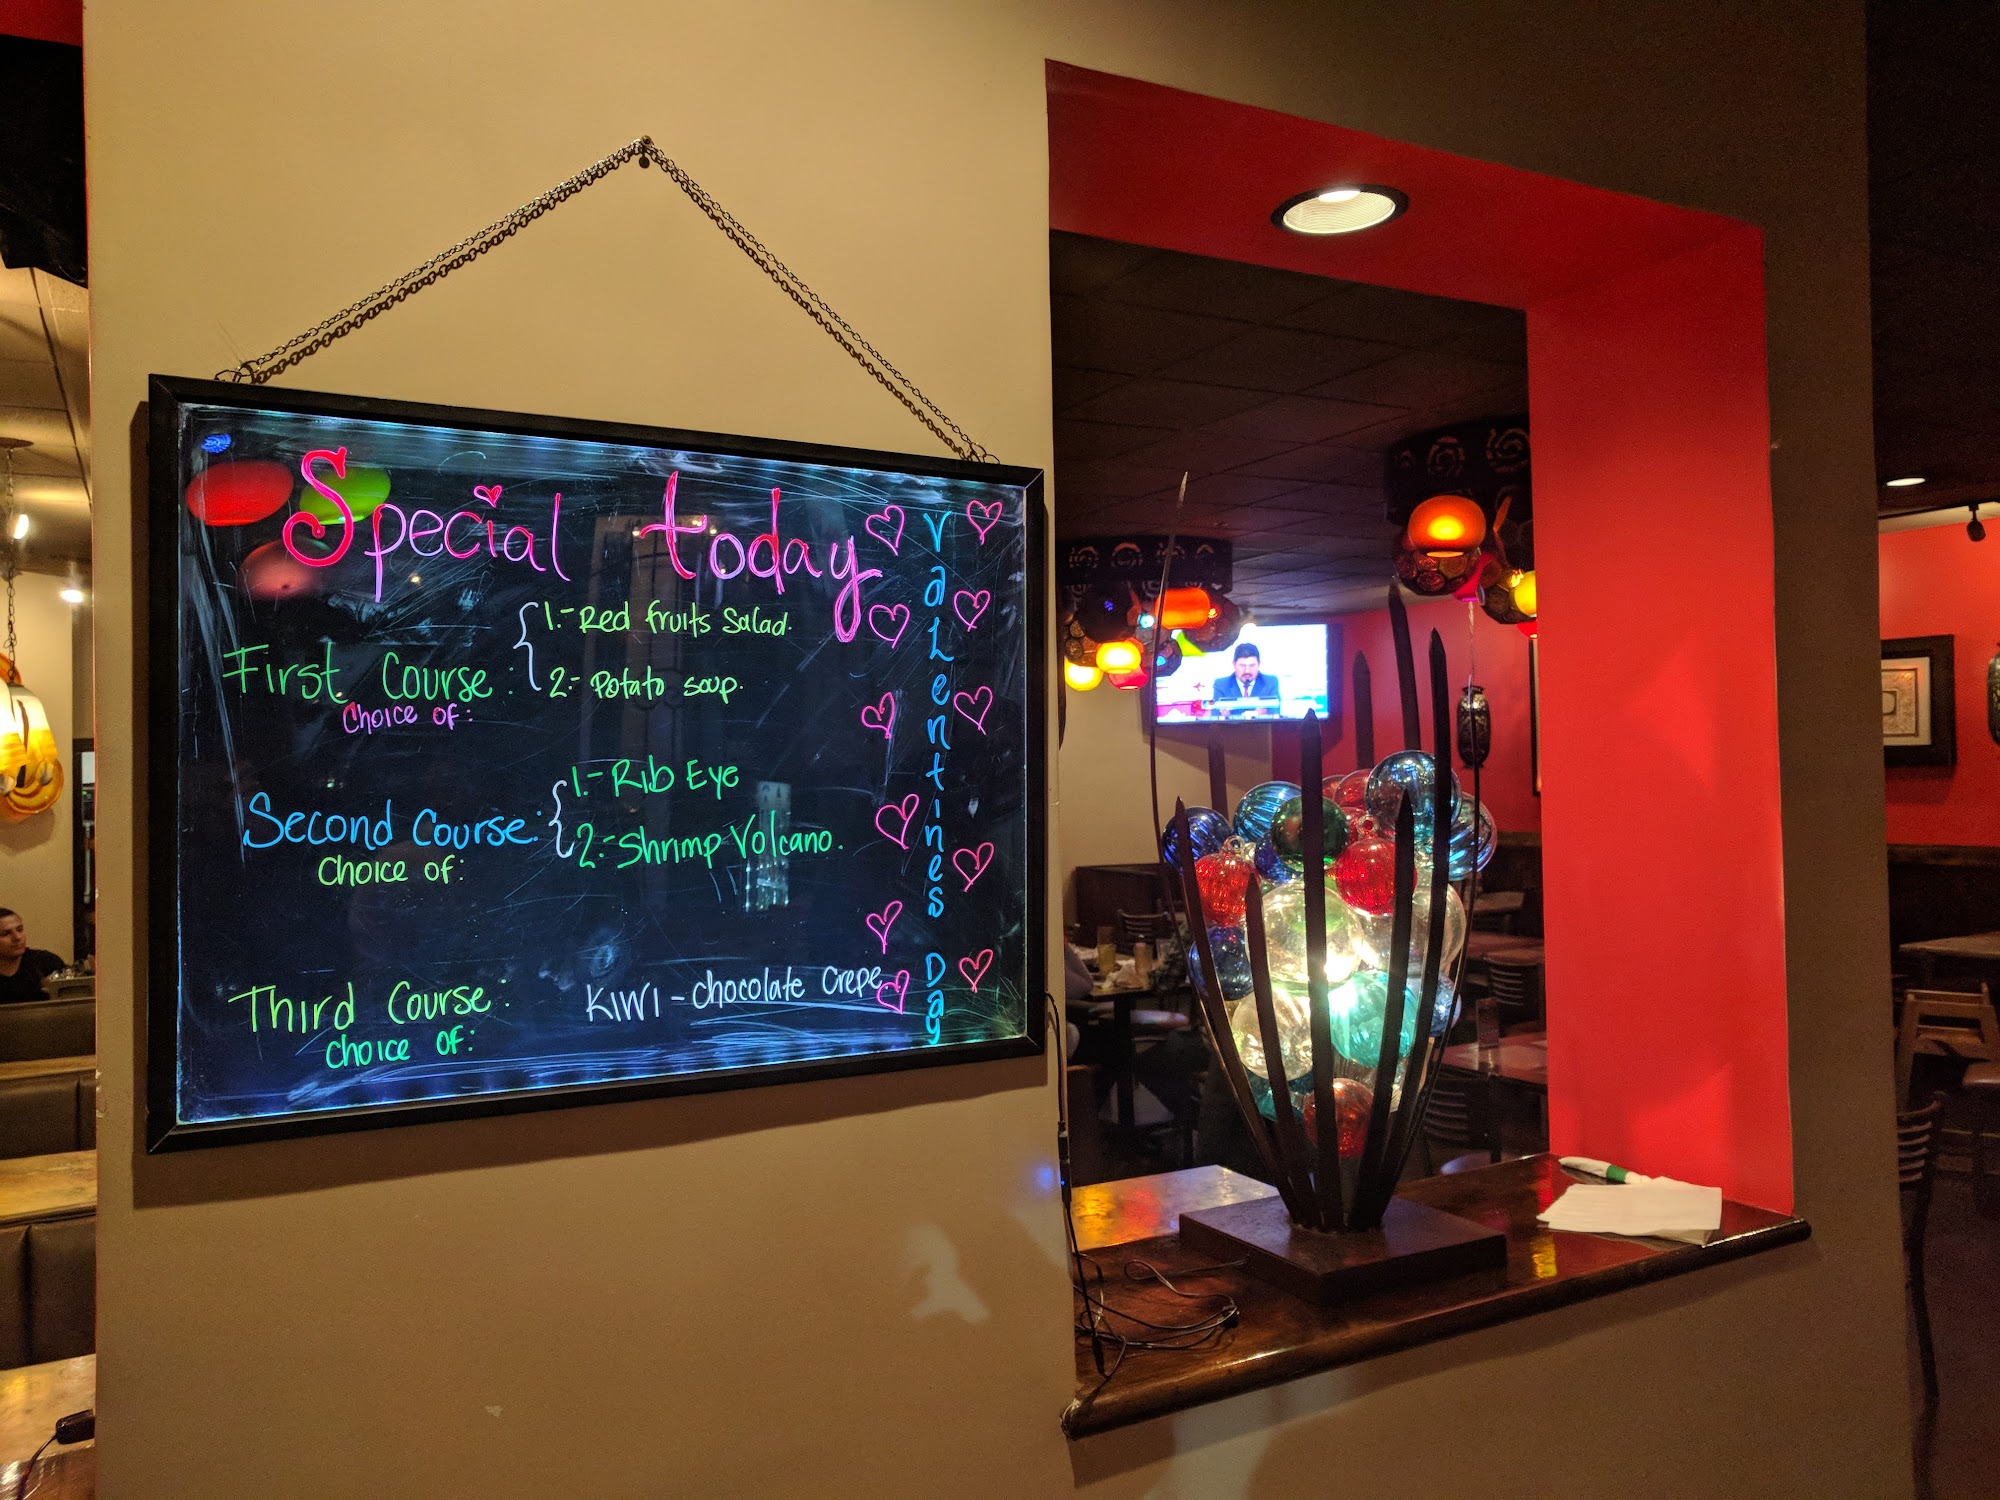 Special today
First Course:
Choice of:
1.- Red fruits Salad.
2.- Potato soup.
Second Course:
Choice of:
1.- Rib Eye
2.- Shrimp Volcano.
Third Course:
Choice of:
KIWI - chocolate crepe
Valentines Day